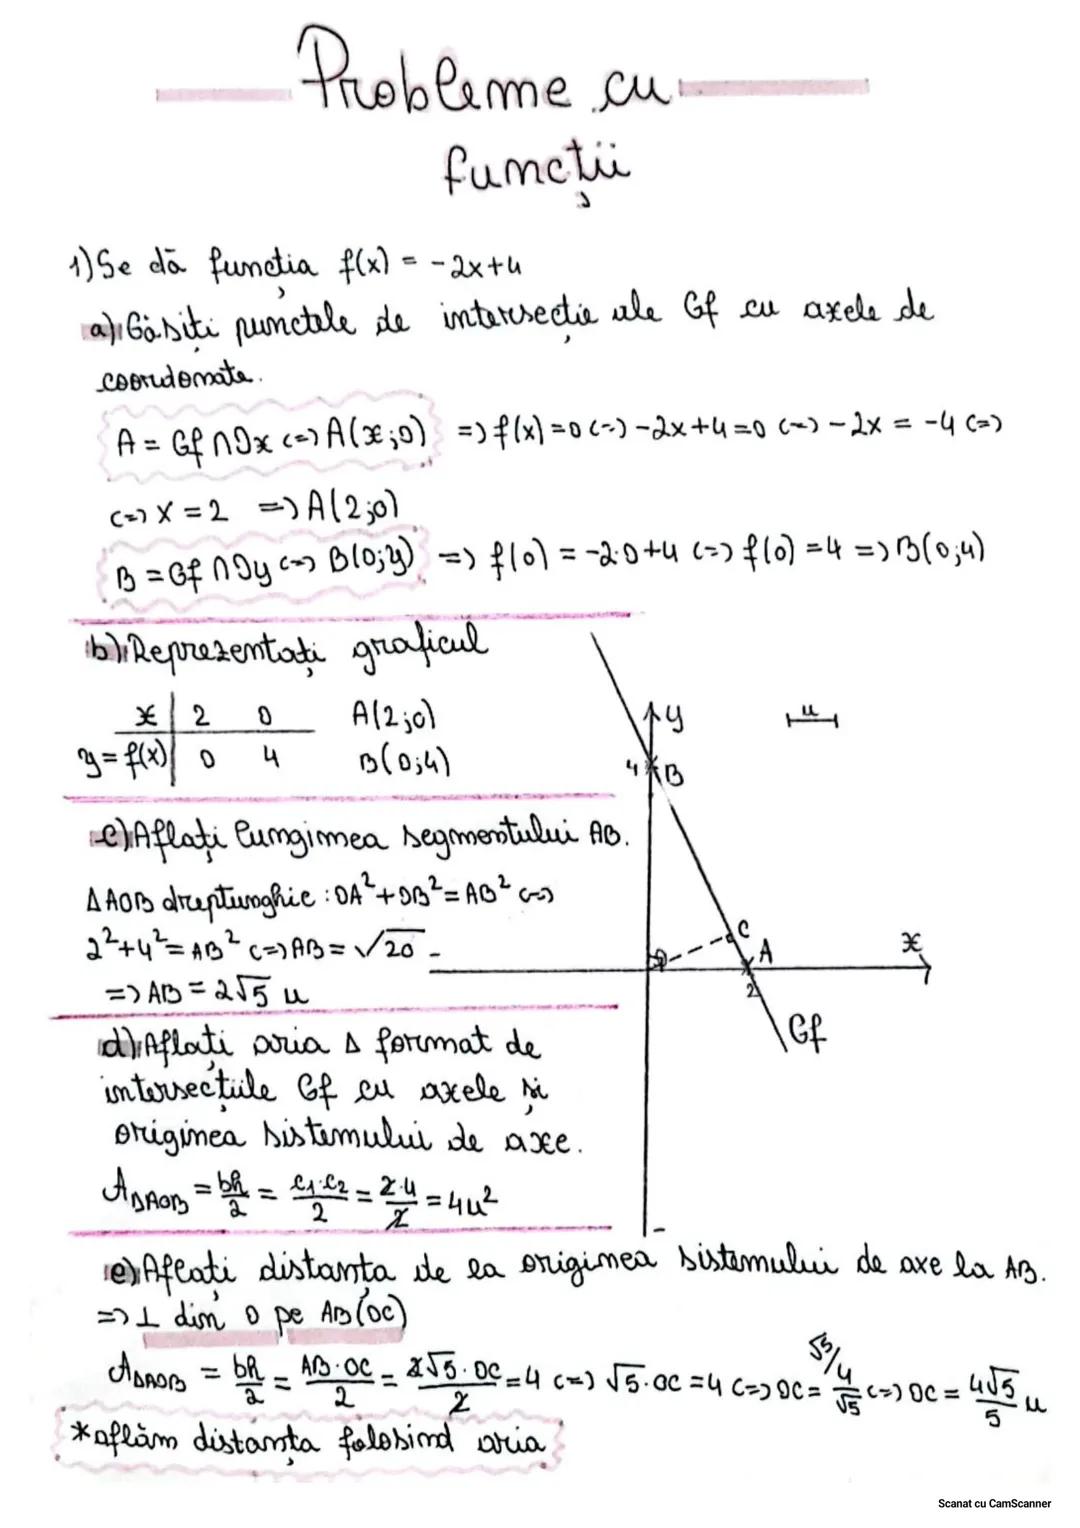 Probleme cu
funcții
1) Se dă funcția f(x) = -2x+4
a) Găsiți punctele de intersecție ale Gf cu axele de
coordonate.
A = Gf ∩ Ox <=> A(x;0) => f(x)=0 <=> -2x+4=0 <=> -2x = -4 <=>
<=> x = 2 => A(2;0)
B = Gf ∩ Oy <=> B(0;y) => f(0) = -2·0+4 <=> f(0) = 4 => B(0;4)
b) Reprezentați graficul
x | 2 0 A(2;0)
y = f(x) | 0 4 B(0;4)
y
u
4 B
c) Aflați lungimea segmentului AB.
ΔAOB dreptunghic : OA²+OB² = AB² <=>
2²+4² = AB² <=> AB = √20
=> AB = 2√5 u
C
A
x
O
2
Gf
d) Aflați aria Δ format de
intersecțiile Gf cu axele și
originea sistemului de axe.
AΔAOB = bh/2 = c1·c2/2 = 2·4/2 = 4u²
e) Aflați distanța de la originea sistemului de axe la AB.
=> ⊥ din O pe AB (OC)
AΔAOB = bh/2 = AB·OC/2 = 2√5·OC/2 = 4 <=> √5·OC = 4 <=> OC = √5/ 4/√5 <=> OC = 4√5/5 u
*aflăm distanța folosind aria
Scanat cu CamScanner